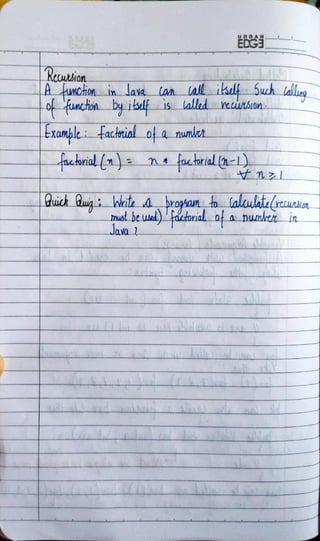 URBAN
EDGE
Recursion
A function in Java can call itself Such calling
of function by itself is called recursion.
Example : Factorial of a number
factorial (n) = n * factorial (n-1)
∀ n ≥ 1
Quick Quiz : Write a program to calculate (recursion
must be used) factorial of a number in
Java ?